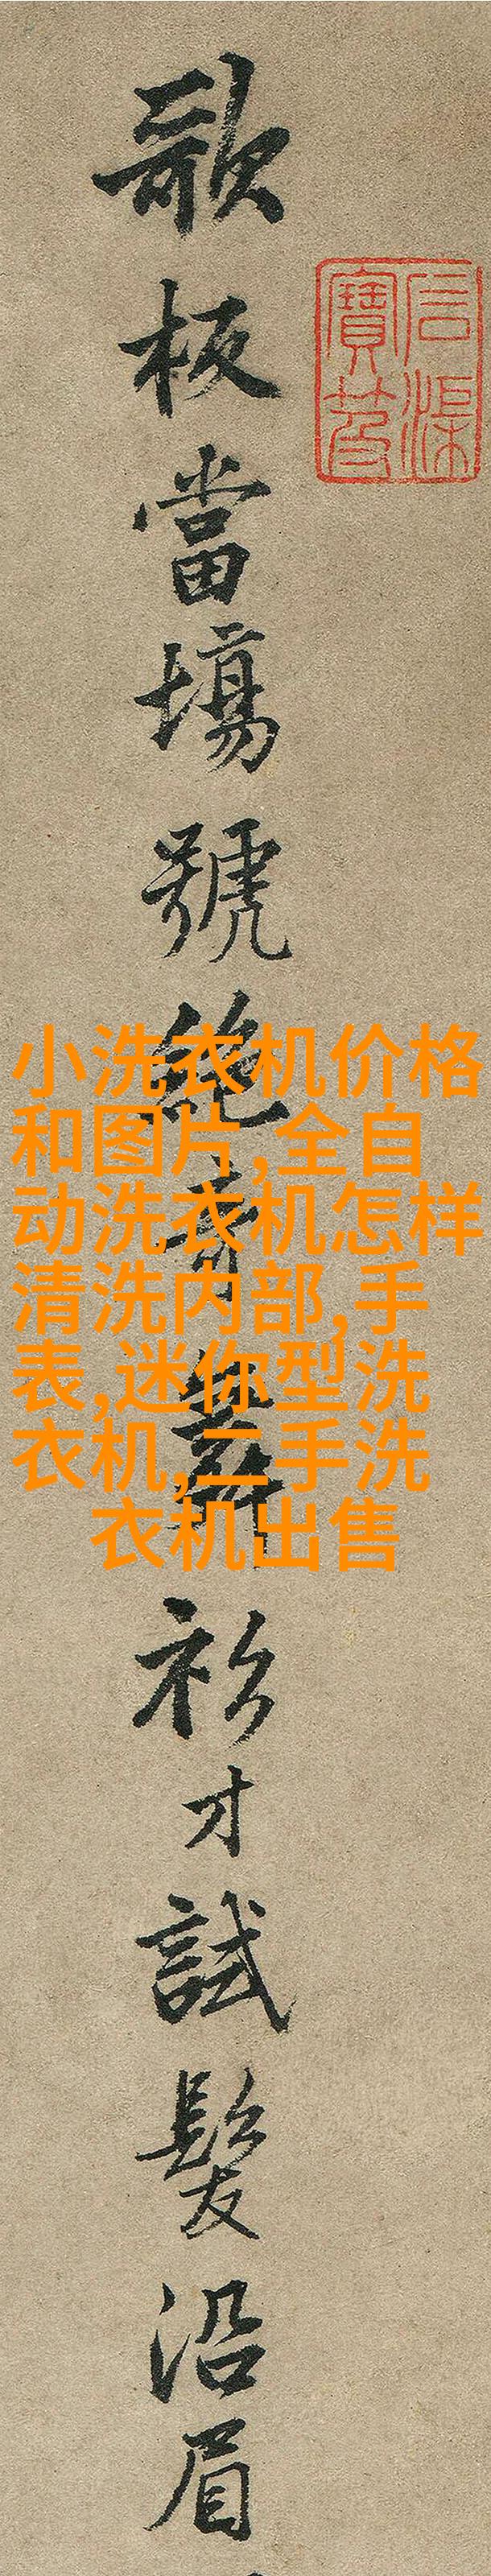 石渠寶笈
歌板當場號絕奇舞衫才試髮沿眉
小洗衣机价格
和图片,全自
动洗衣机怎样
清洗内部,手
表,迷你型洗
衣机,二手洗
衣机出售